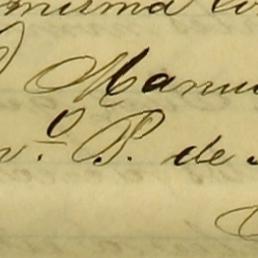 misma
Manu
v.º P. de